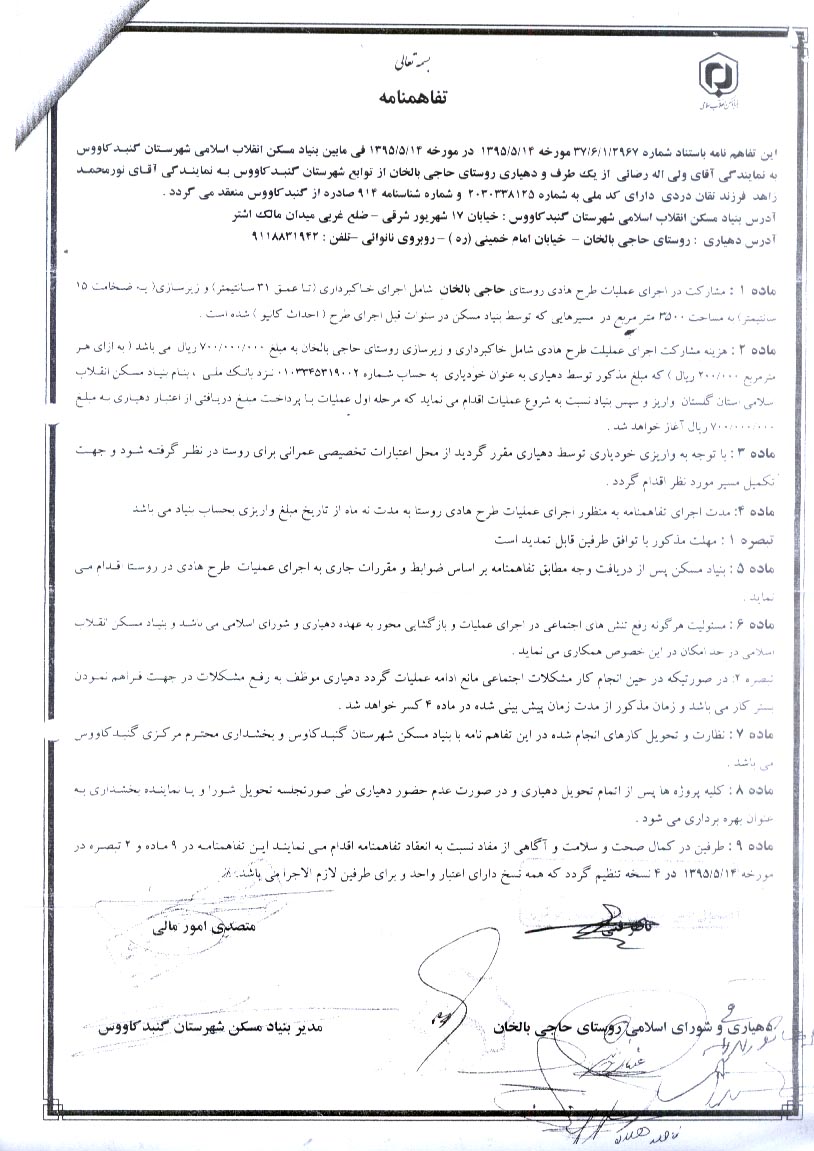 بسمه تعالی
تفاهمنامه
بنیاد مسکن انقلاب اسلامی
این تفاهم نامه باستناد شماره ۳۷/۶/۱/۲۹۶۷ مورخه ۱۳۹۵/۵/۱۴ در مورخه ۱۳۹۵/۵/۱۴ فی مابین بنیاد مسکن انقلاب اسلامی شهرستان گنبدکاووس
به نمایندگی آقای ولی اله رضائی از یک طرف و دهیاری روستای حاجی بالخان از توابع شهرستان گنبدکاووس به نمایندگی آقای نورمحمد
زاهد فرزند نقان دردی دارای کد ملی به شماره ۲۰۳۰۳۳۸۱۲۵ و شماره شناسنامه ۹۱۴ صادره از گنبدکاووس منعقد می گردد .
آدرس بنیاد مسکن انقلاب اسلامی شهرستان گنبدکاووس : خیابان ۱۷ شهریور شرقی – ضلع غربی میدان مالک اشتر
آدرس دهیاری : روستای حاجی بالخان – خیابان امام خمینی (ره ) – روبروی نانوائی –تلفن : ۹۱۱۸۸۳۱۹۴۲
ماده ۱ : مشارکت در اجرای عملیات طرح هادی روستای حاجی بالخان شامل اجرای خاکبرداری (تا عمق ۳۱ سانتیمتر) و زیرسازی( به ضخامت ۱۵
سانتیمتر) به مساحت ۳۵۰۰ متر مربع در مسیرهایی که توسط بنیاد مسکن در سنوات قبل اجرای طرح ( احداث کانیو ) شده است .
ماده ۲ : هزینه مشارکت اجرای عملیات طرح هادی شامل خاکبرداری و زیرسازی روستای حاجی بالخان به مبلغ ۷۰۰/۰۰۰/۰۰۰ ریال می باشد ( به ازای هر
مترمربع ۲۰۰/۰۰۰ ریال ) که مبلغ مذکور توسط دهیاری به عنوان خودیاری به حساب شماره ۰۱۰۳۳۴۵۳۱۹۰۰۲ نزد بانک ملی ، بنام بنیاد مسکن انقلاب
سلامی استان گلستان واریز و سپس بنیاد نسبت به شروع عملیات اقدام می نماید که مرحله اول عملیات با پرداخت مبلغ دریافتی از اعتبار دهیاری به مبلغ
۷۰۰/۰۰۰/۰۰۰ ریال آغاز خواهد شد .
ماده ۳ : با توجه به واریزی خودیاری توسط دهیاری مقرر گردید از محل اعتبارات تخصیصی عمرانی برای روستا در نظر گرفته شود و جهت
تکمیل مسیر مورد نظر اقدام گردد .
ماده ۴: مدت اجرای تفاهمنامه به منظور اجرای عملیات طرح هادی روستا به مدت نه ماه از تاریخ مبلغ واریزی بحساب بنیاد می باشد
تبصره ۱ : مهلت مذکور با توافق طرفین قابل تمدید است
ماده ۵ : بنیاد مسکن پس از دریافت وجه مطابق تفاهمنامه بر اساس ضوابط و مقررات جاری به اجرای عملیات طرح هادی در روستا اقدام می
نماید .
ماده ۶ : مسئولیت هرگونه رفع تنش های اجتماعی در اجرای عملیات و بازگشایی محور به عهده دهیاری و شورای اسلامی می باشد و بنیاد مسکن انقلاب
اسلامی در حد امکان در این خصوص همکاری می نماید .
تبصره ۲: در صورتیکه در حین انجام کار مشکلات اجتماعی مانع ادامه عملیات گردد دهیاری موظف به رفع مشکلات در جهت فراهم نمودن
بستر کار می باشد و زمان مذکور از مدت زمان پیش بینی شده در ماده ۴ کسر خواهد شد .
ماده ۷ : نظارت و تحویل کارهای انجام شده در این تفاهم نامه با بنیاد مسکن شهرستان گنبدکاوس و بخشداری محترم مرکزی گنبدکاووس
می باشد .
ماده ۸ : کلیه پروژه ها پس از اتمام تحویل دهیاری و در صورت عدم حضور دهیاری طی صورتجلسه تحویل شورا و یا نماینده بخشداری به
عنوان بهره برداری می شود .
ماده ۹ : طرفین در کمال صحت و سلامت و آگاهی از مفاد نسبت به انعقاد تفاهمنامه اقدام می نمایند این تفاهمنامه در ۹ ماده و ۲ تبصره در
مورخه ۱۳۹۵/۵/۱۴ در ۴ نسخه تنظیم گردد که همه نسخ دارای اعتبار واحد و برای طرفین لازم الاجرا می باشد.
ناظر فنی
متصدی امور مالی
دهیاری و شورای اسلامی روستای حاجی بالخان
مدیر بنیاد مسکن شهرستان گنبدکاووس